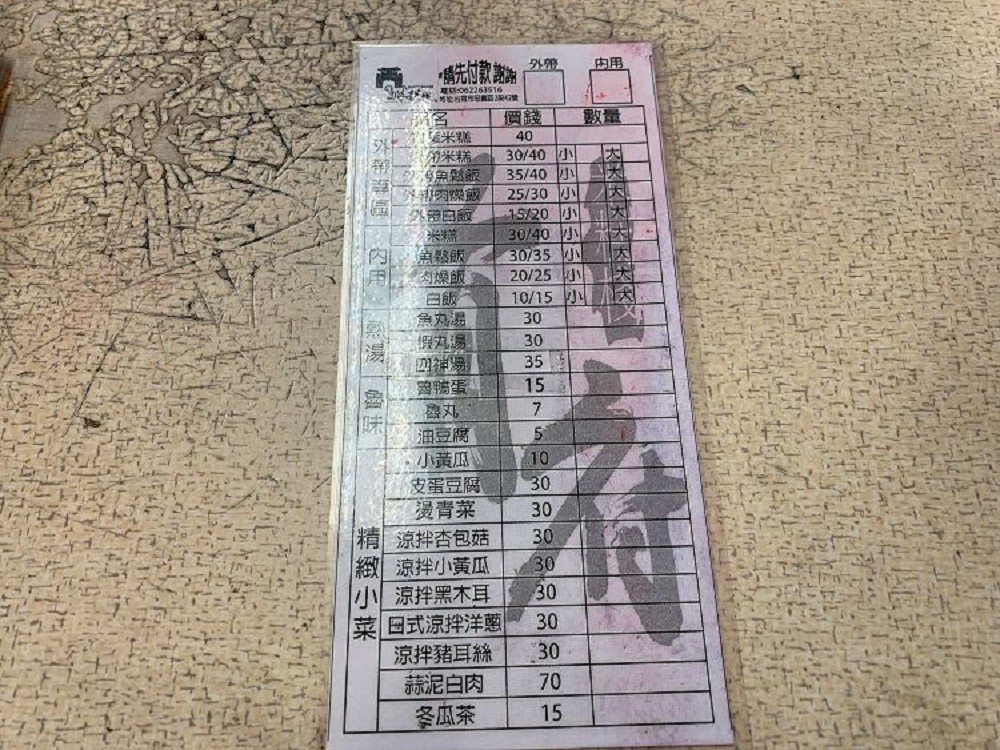 請先付款 謝謝 外帶 內用
電話:062263516
名 價錢 數量
外帶專區
米糕 40
帶米糕 30/40 小 大
外帶魚鬆飯 35/40 小 大
外帶肉燥飯 25/30 小 大
外帶白飯 15/20 小 大
內用
米糕 30/40 小 大
魚鬆飯 30/35 小 大
肉燥飯 20/25 小 大
白飯 10/15 小 大
熱湯
魚丸湯 30
蝦丸湯 30
四神湯 35
魯味
魯鴨蛋 15
魯丸 7
油豆腐 5
小黃瓜 10
精緻小菜
皮蛋豆腐 30
燙青菜 30
涼拌杏包菇 30
涼拌小黃瓜 30
涼拌黑木耳 30
日式涼拌洋蔥 30
涼拌豬耳絲 30
蒜泥白肉 70
冬瓜茶 15